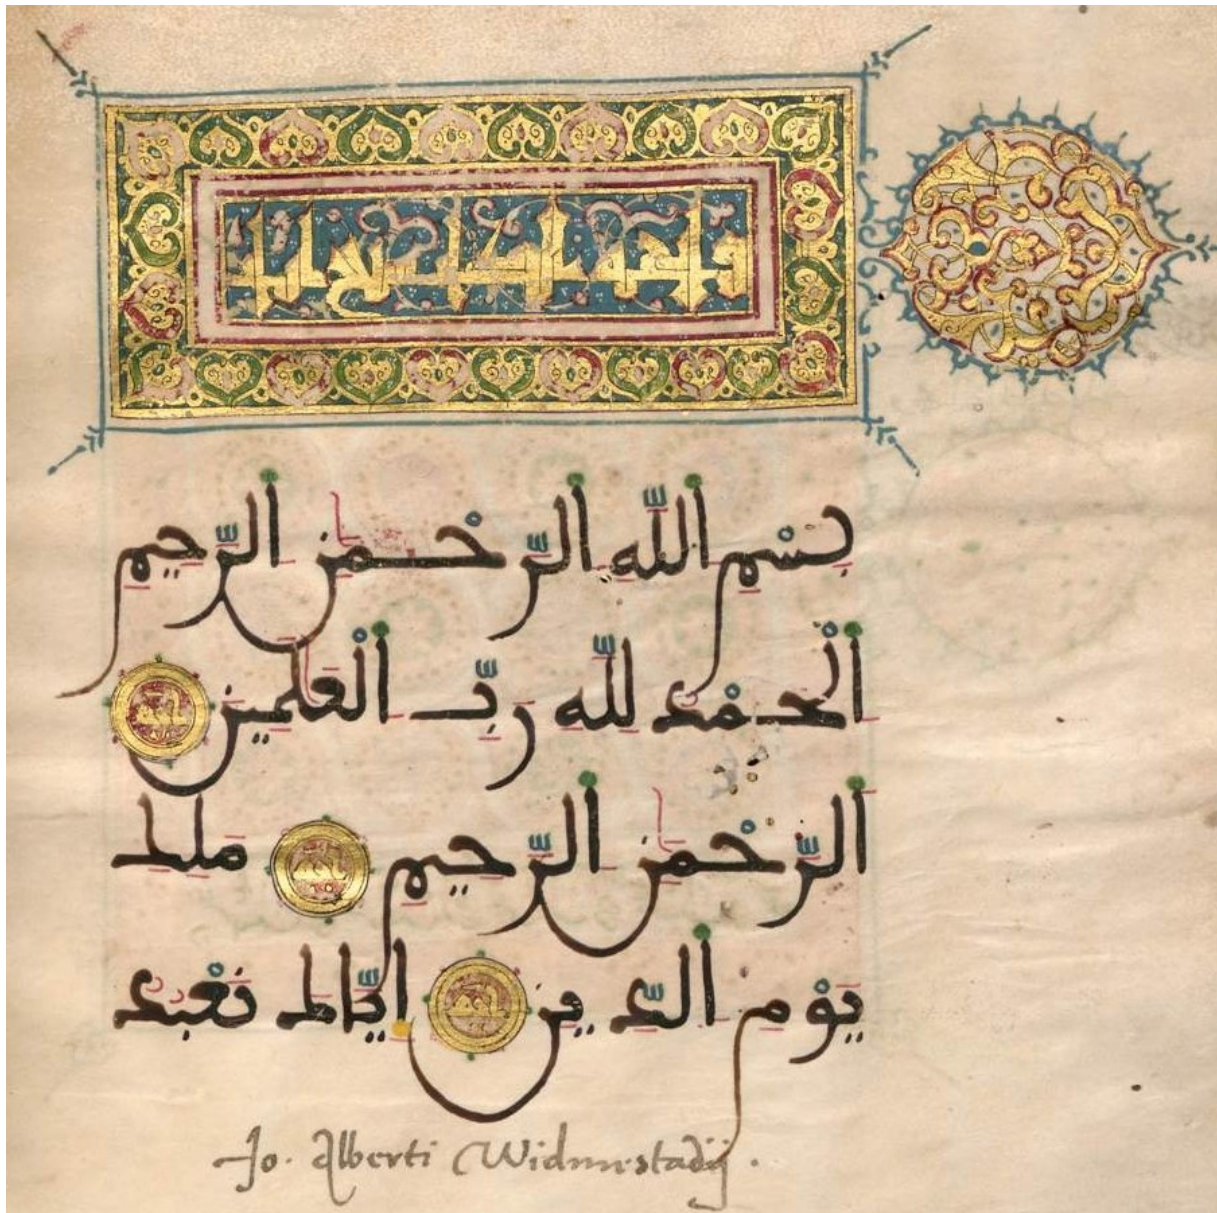 فاتحة الكتاب
بِسْمِ اِللَّهِ اِلرَّحْمَٰنِ اِلرَّحِيمِ
اِلْحَمْدُ لِلهِ رَبِّ اِلْعَٰلَمِينَ
اَلرَّحْمَٰنِ اِلرَّحِيمِ مَلِكِ
يَوْمِ اِلدِّينِ إِيَّاكَ نَعْبُدُ
Jo. Alberti Widmestadij.